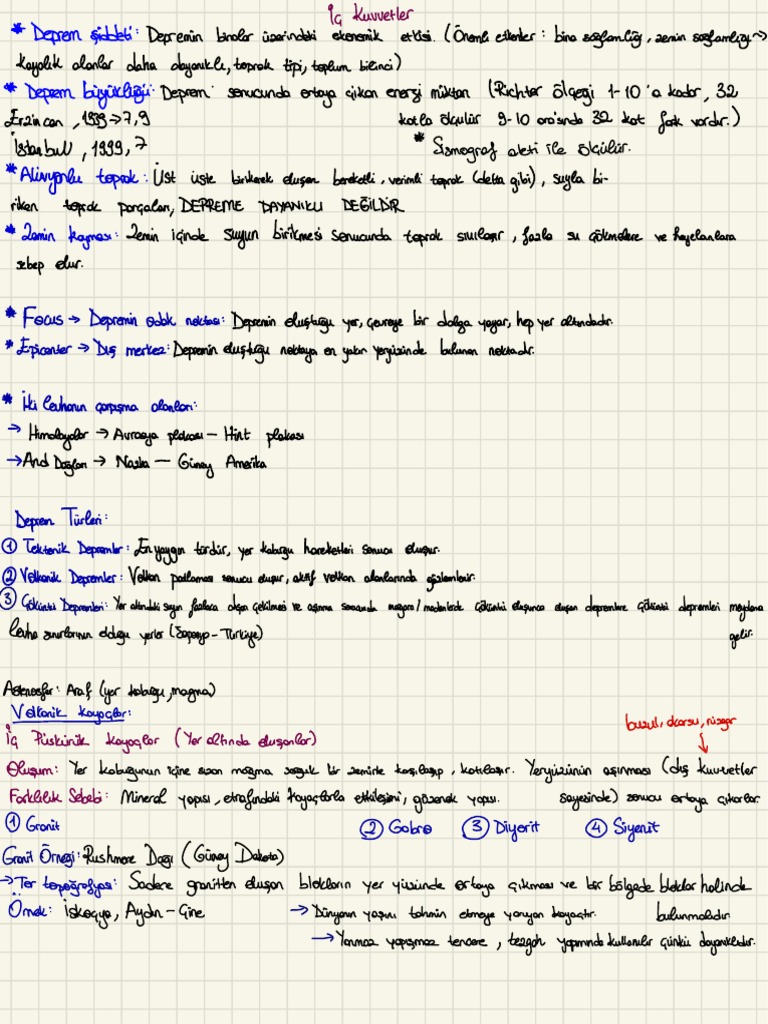 İç Kuvvetler
* Deprem şiddeti: Depremin binalar üzerindeki ekonomik etkisi. (Önemli etkenler: bina sağlamlığı, zemin sağlamlığı →
kayalık alanlar daha dayanıklı, toprak tipi, toplum bilinci)
* Deprem büyüklüğü: Deprem sonucunda ortaya çıkan enerji miktarı (Richter ölçeği 1-10'a kadar, 32
Erzincan, 1939 → 7,9 katla ölçülür 9-10 arasında 32 kat fark vardır.)
İstanbul, 1999, 7 * Sismograf aleti ile ölçülür.
* Alüvyonlu toprak: Üst üste birikerek oluşan bereketli, verimli toprak (delta gibi), suyla bi-
riken toprak parçaları, DEPREME DAYANIKLI DEĞİLDİR
* Zemin kayması: Zemin içinde suyun birikmesi sonucunda toprak sıvılaşır, fazla su çökmelere ve heyelanlara
sebep olur.
* Focus → Depremin odak noktası: Depremin oluştuğu yer, çevreye bir dalga yayar, hep yer altındadır.
* Epicenter → Dış merkez: Depremin oluştuğu noktaya en yakın yeryüzünde bulunan noktadır.
* İki levhanın çarpışma alanları:
→ Himalayalar → Avrasya plakası — Hint plakası
→ And Dağları → Naska — Güney Amerika
Deprem Türleri:
① Tektonik Depremler: En yaygın türdür, yer kabuğu hareketleri sonucu oluşur.
② Volkanik Depremler: Volkan patlaması sonucu oluşur, aktif volkan alanlarında gözlemlenir.
③ Çöküntü Depremleri: Yer altındaki suyun fazlaca dışarı çekilmesi ve aşınma sonucunda mağara/madenlerde çöküntü oluşunca oluşan depremlere çöküntü depremleri meydana
levha sınırlarının olduğu yerler (Japonya-Türkiye) gelir.
Astenosfer: Araf (yer kabuğu, magma)
Volkanik kayaçlar:
buzul, akarsu, rüzgar
İç Püskürük Kayaçlar (Yer altında oluşanlar)
Oluşum: Yer kabuğunun içine sızan magma soğuk bir zeminle karşılaşıp, katılaşır. Yeryüzünün aşınması (dış kuvvetler
Farklılık Sebebi: Mineral yapısı, etrafındaki kayaçlarla etkileşimi, gözenek yapısı. sayesinde) sonucu ortaya çıkarlar.
① Granit ② Gabro ③ Diyorit ④ Siyenit
Granit Örneği: Rushmore Dağı (Güney Dakota)
→ Tor topoğrafyası: Sadece granitten oluşan blokların yer yüzünde ortaya çıkması ve bir bölgede bloklar halinde
Örnek: İskoçya, Aydın-Çine → Dünyanın yaşını tahmin etmeye yarayan kayaçtır. bulunmalıdır.
→ Yanmaz yapışmaz tencere, tezgah yapımında kullanılır çünkü dayanıklıdır.